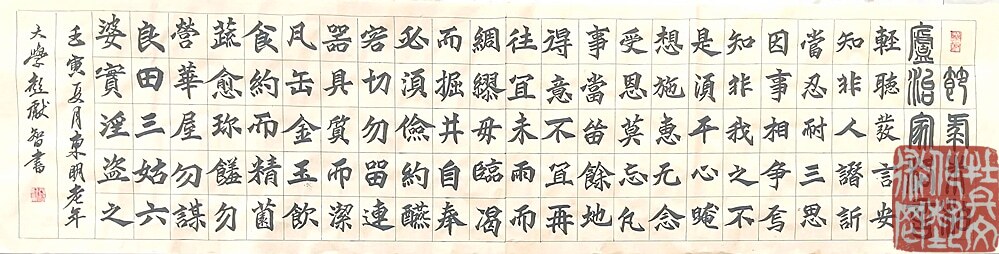 節
廬治家
輕聽發言安
知非人譖訴
當忍耐三思
因事相爭焉
知非我之不
是須平心暗
想施惠无念
受恩莫忘凡
事當留餘地
得意不宜再
往宜未雨而
綢繆毋臨渴
而掘井自奉
必須儉約醼
客切勿留連
器具質而潔
瓦缶金玉飲
食約而精菌
蔬愈珍饈勿
營華屋勿謀
良田三姑六
婆實淫盜之
壬寅夏月東明老年
大學獻智書